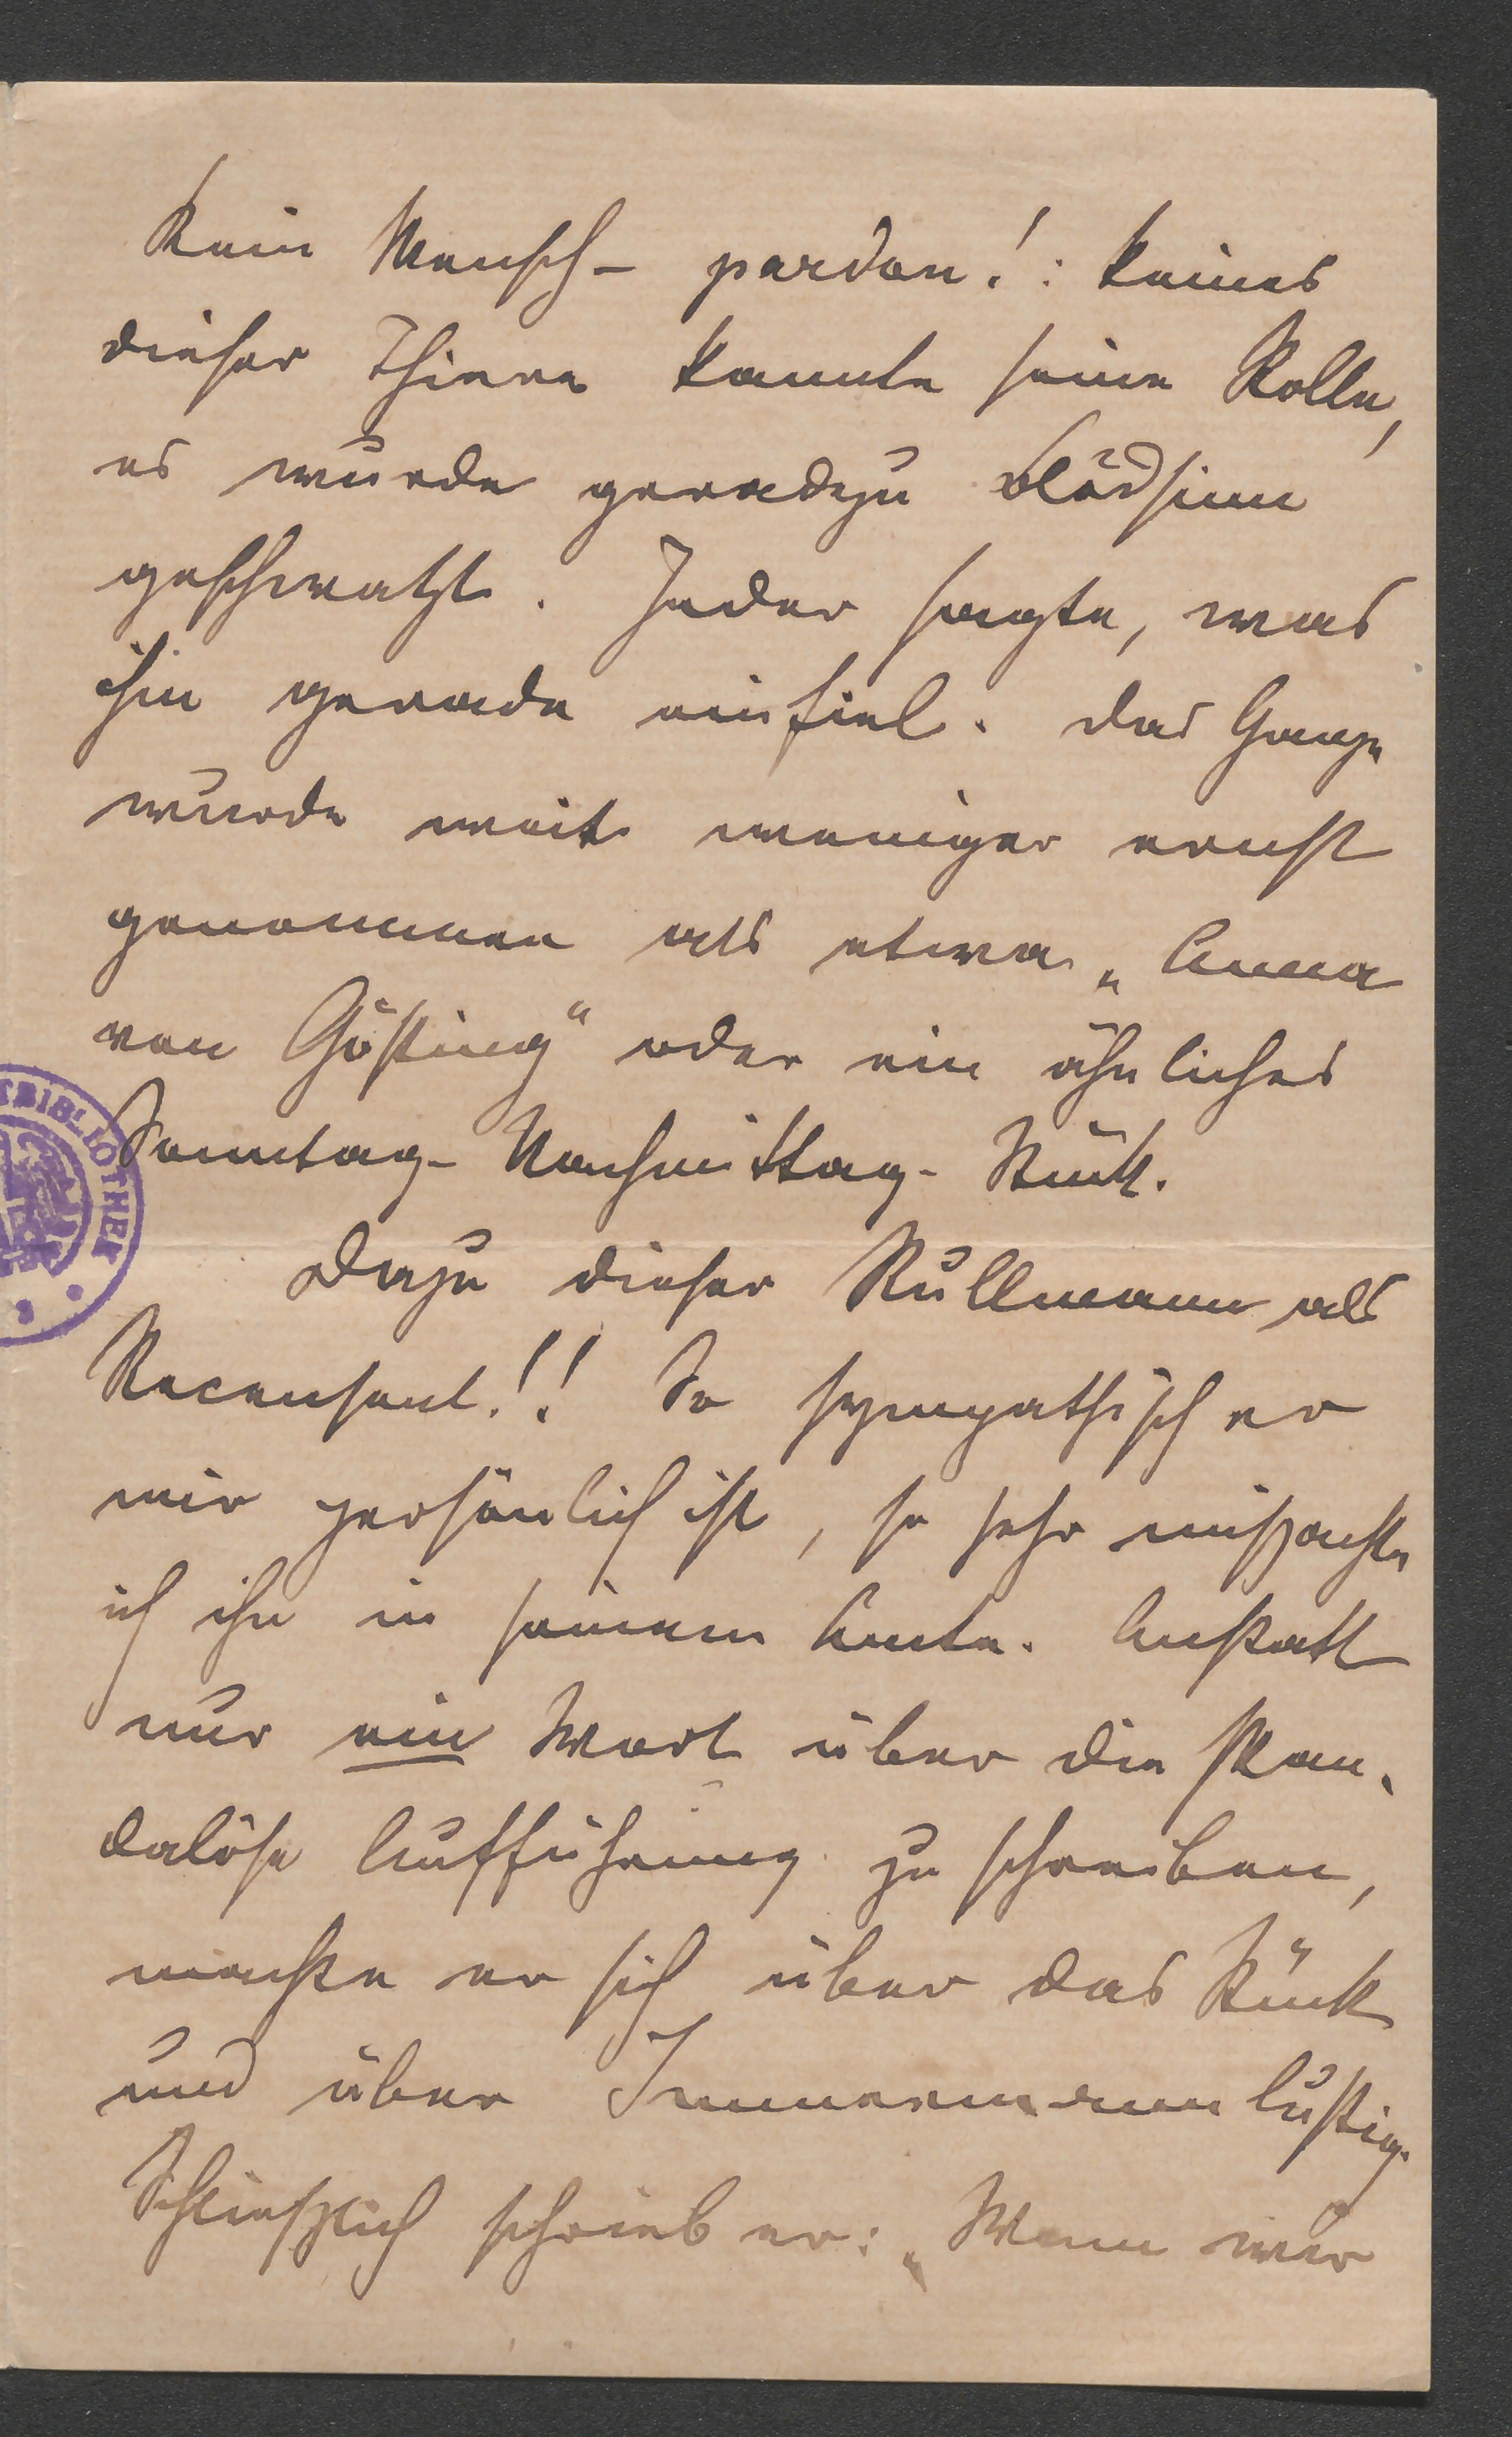 Kein Mensch – pardon!: keines
dieser Thiere kannte seine Rolle,
es wurde geradezu Blödsinn
geschwatzt. Jeder sagte, was
ihm gerade einfiel. Das Ganze
wurde weit weniger ernst
genommen als etwa „Anna
von Gösting“ oder ein ähnliches
Sonntag-Nachmittag-Stück.
Dazu dieser Rullmann als
Recensent!! So sympathisch er
mir persönlich ist, so sehr mißachte
ich ihn in seinem Amte. Anstatt
nur ein Wort über die skan-
dalöse Aufführung zu schreiben,
machte er sich über das Stück
und über Immermann lustig.
Schließlich schrieb er: „Wenn wir
BIBLIOTHEK